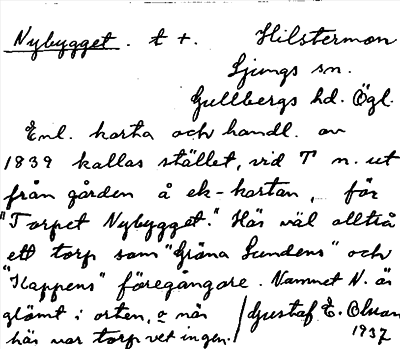 Nybygget. t +. Hilstermon
Ljungs sn.
Gullbergs hd. Ögl.
Enl. karta och handl. av
1839 kallas stället, vid T n. ut
från gården å ek-kartan, för
"Torpet Nybygget." Här väl alltså
ett torp som "Gröna Lundens" och
"Kappens" föregångare. Namnet N. är
glömt i orten, o när
här var torp vet ingen. / Gustaf E. Olsson
1937